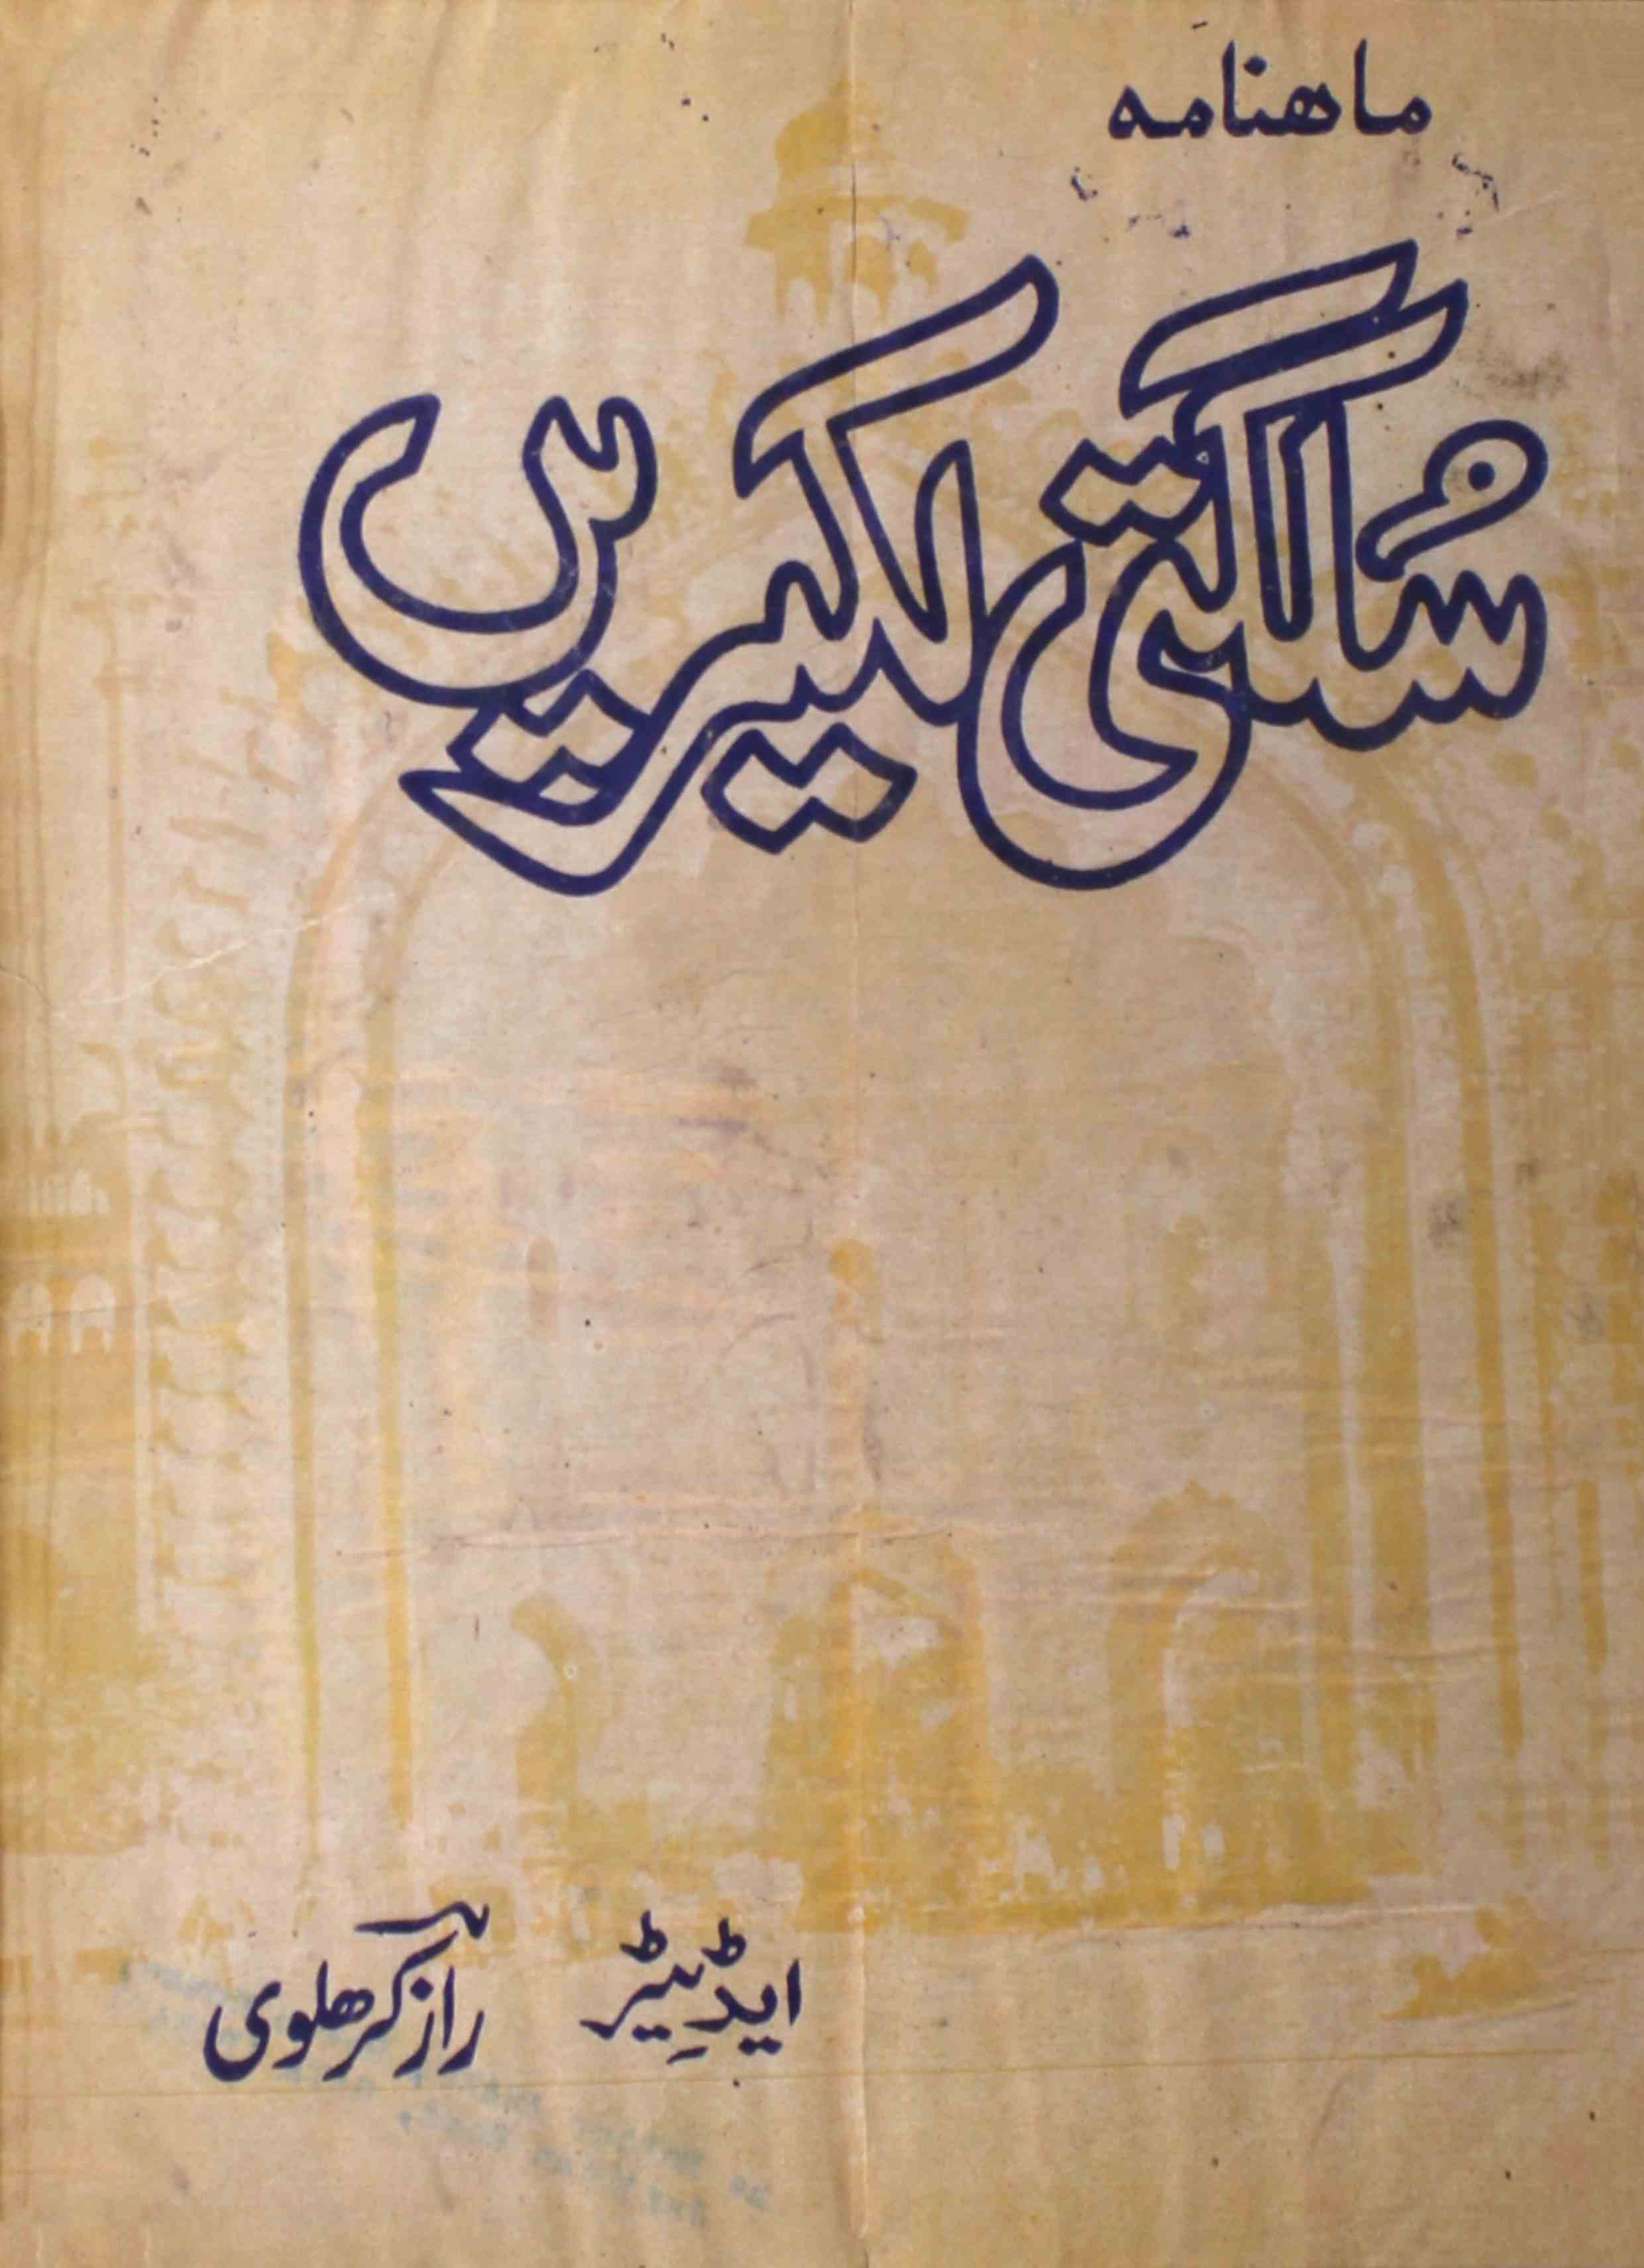 ماھنامہ
سُلگتی لکیریں
ایڈِیٹر رازؔ کرھلوی